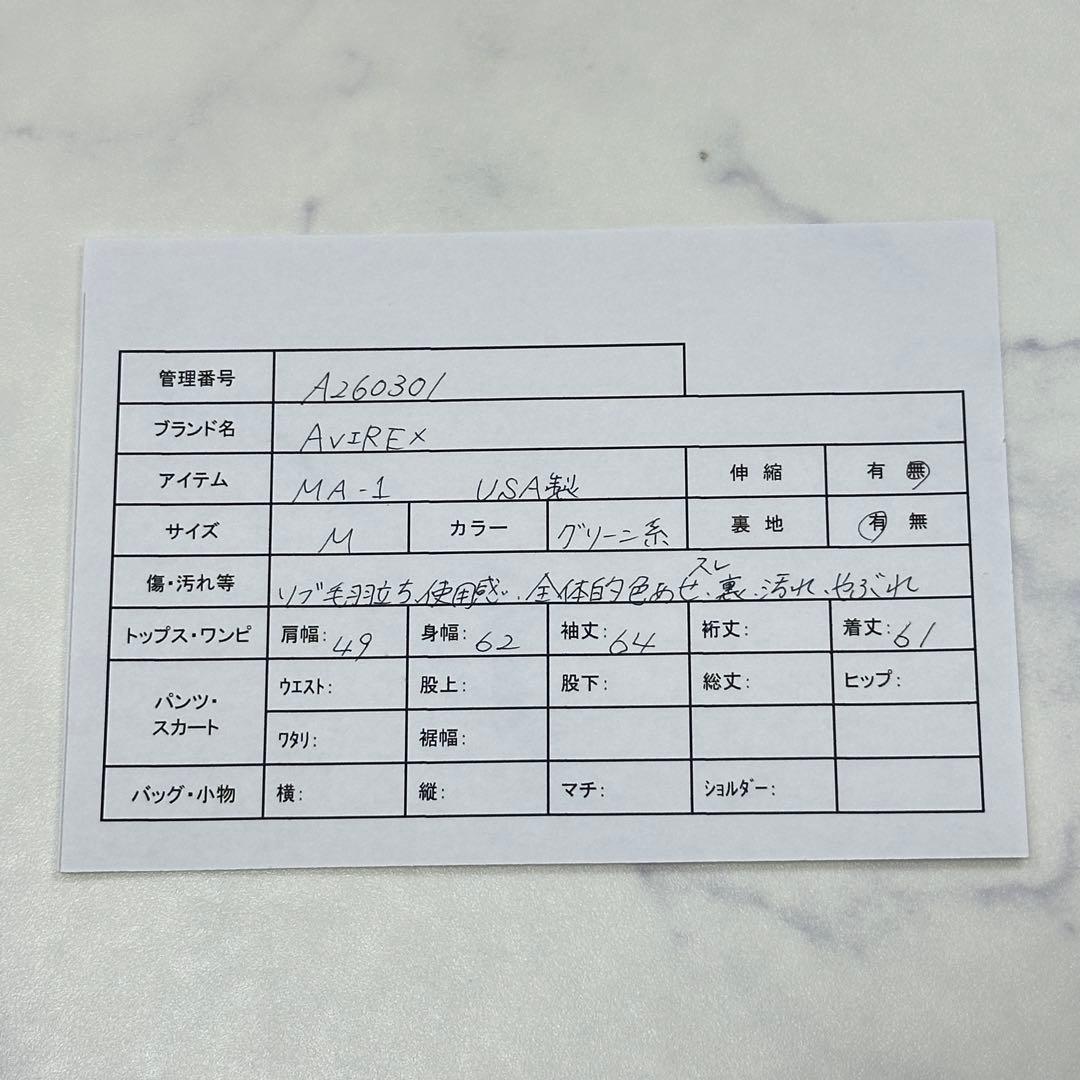 管理番号 A260301
ブランド名 AVIREX
アイテム MA-1 USA製 伸縮 有 無
サイズ M カラー グリーン系 裏地 有 無
スレ
傷・汚れ等 リブ毛羽立ち、使用感、全体的色あせ、裏、汚れ、やぶれ
トップス・ワンピ 肩幅: 49 身幅: 62 袖丈: 64 裄丈: 着丈: 61
パンツ・スカート ウエスト: 股上: 股下: 総丈: ヒップ:
ワタリ: 裾幅:
バッグ・小物 横: 縦: マチ: ショルダー: